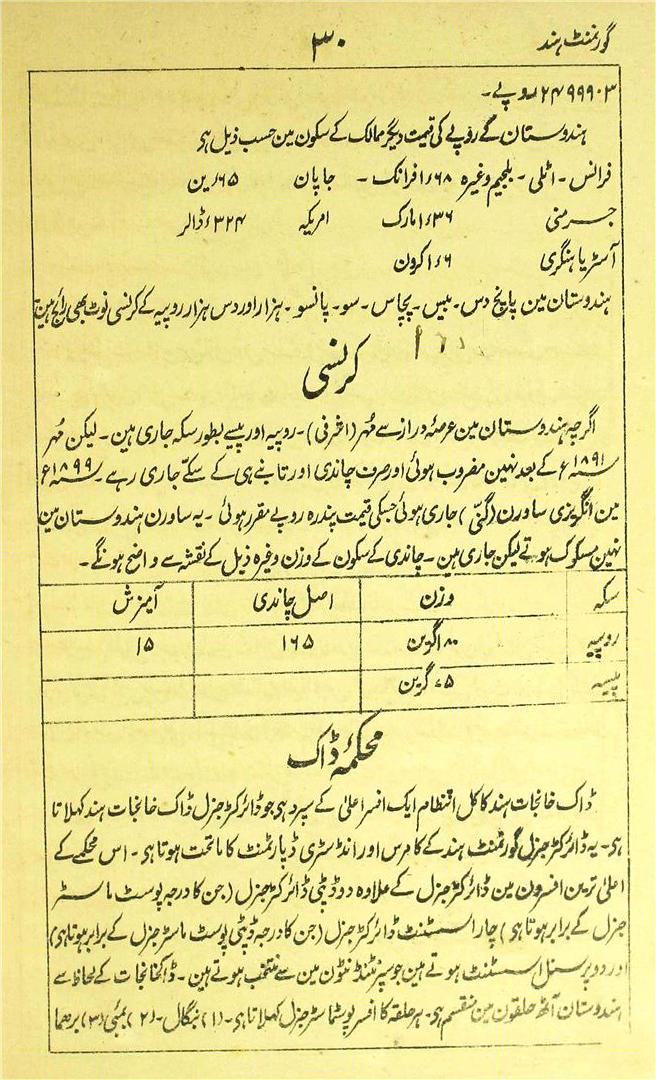 گورنمنٹ ہند
۳۰
۲۴۹۹۹۰۳ روپے۔
ہندوستان کے روپے کی قیمت دیگر ممالک کے سکون مین حسب ذیل ہی
فرانس۔ اٹلی۔ بلجیم وغیرہ ۱٫۶۸ فرانک۔ جاپان ٫۶۵ ین
جرمنی ۱٫۳۶ مارک امریکہ ٫۳۲۴ ڈالر
آسٹریا ہنگری ۱٫۶ کرون
ہندوستان مین پانچ دس۔ بیس۔ پچاس۔ سو۔ پانسو۔ ہزار اور دس ہزار روپیہ کے کرنسی نوٹ بھی رائج ہین
کرنسی
اگرچہ ہندوستان مین عرصۂ دراز سے مُہر (اشرفی)۔ روپیہ اور پیسے بطور سکہ جاری ہین۔ لیکن مُہر
۱۸۹۱ء کے بعد نہین مضروب ہوئی اور صرف چاندی اور تانبے ہی کے سکّے جاری رہے۔ ۱۸۹۹ء
مین انگریزی ساورن (گنی) جاری ہوئی جسکی قیمت پندرہ روپے مقرر ہوئی۔ یہ ساورن ہندوستان مین
نہین مسکوک ہوتے لیکن جاری ہین۔ چاندی کے سکون کے وزن وغیرہ ذیل کے نقشہ سے واضح ہونگے۔
سکہ وزن اصل چاندی آمیزش
روپیہ ۱۸۰ گرین ۱۶۵ ۱۵
پیسہ گرین
محکمۂ ڈاک
ڈاک خانجات ہند کا کل انتظام ایک افسر اعلیٰ کے سپرد ہی جو ڈائرکٹر جنرل ڈاک خانجات ہند کہلاتا
ہی۔ یہ ڈائرکٹر جنرل گورنمنٹ ہند کے کامرس اور انڈسٹری ڈپارٹمنٹ کا ماتحت ہوتا ہی۔ اس محکمے کے
اعلیٰ ترین افسرون مین ڈائرکٹر جنرل کے علاوہ دو ڈپٹی ڈائرکٹر جنرل (جن کا درجہ پوسٹ ماسٹر
جنرل کے برابر ہوتا ہی) چار اسسٹنٹ ڈائرکٹر جنرل (جن کا درجہ ڈپٹی پوسٹ ماسٹر جنرل کے برابر ہوتا ہی)
اور دو پرسنل اسسٹنٹ ہوتے ہین جو سپرنٹنڈنٹون مین سے منتخب ہوتے ہین۔ ڈاکخانجات کے لحاظ سے
ہندوستان آٹھ حلقون مین منقسم ہی۔ ہر حلقہ کا افسر پوسٹماسٹر جنرل کہلاتا ہی۔ (۱) بنگال۔ (۲) بمبئی (۳) برھما